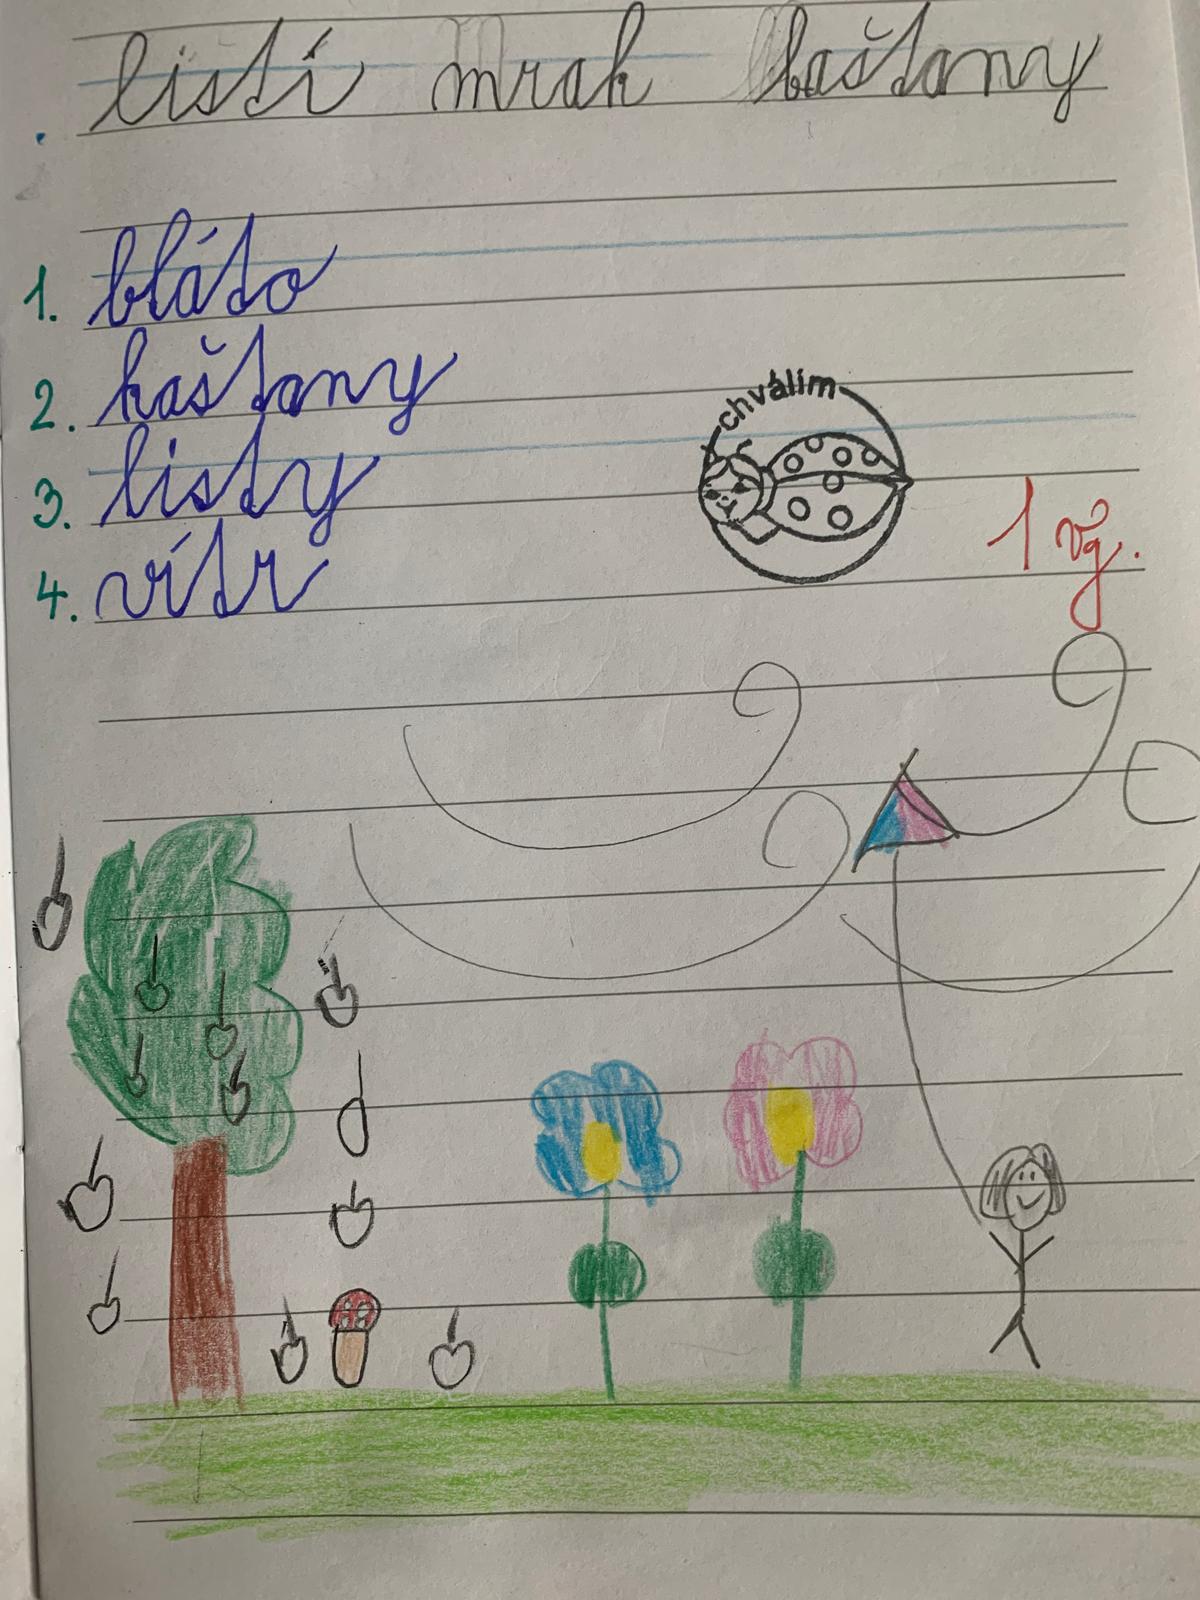 listí mrak kaštany
1. bláto
2. kaštany
3. listy
4. vítr
chválím
1 vý.